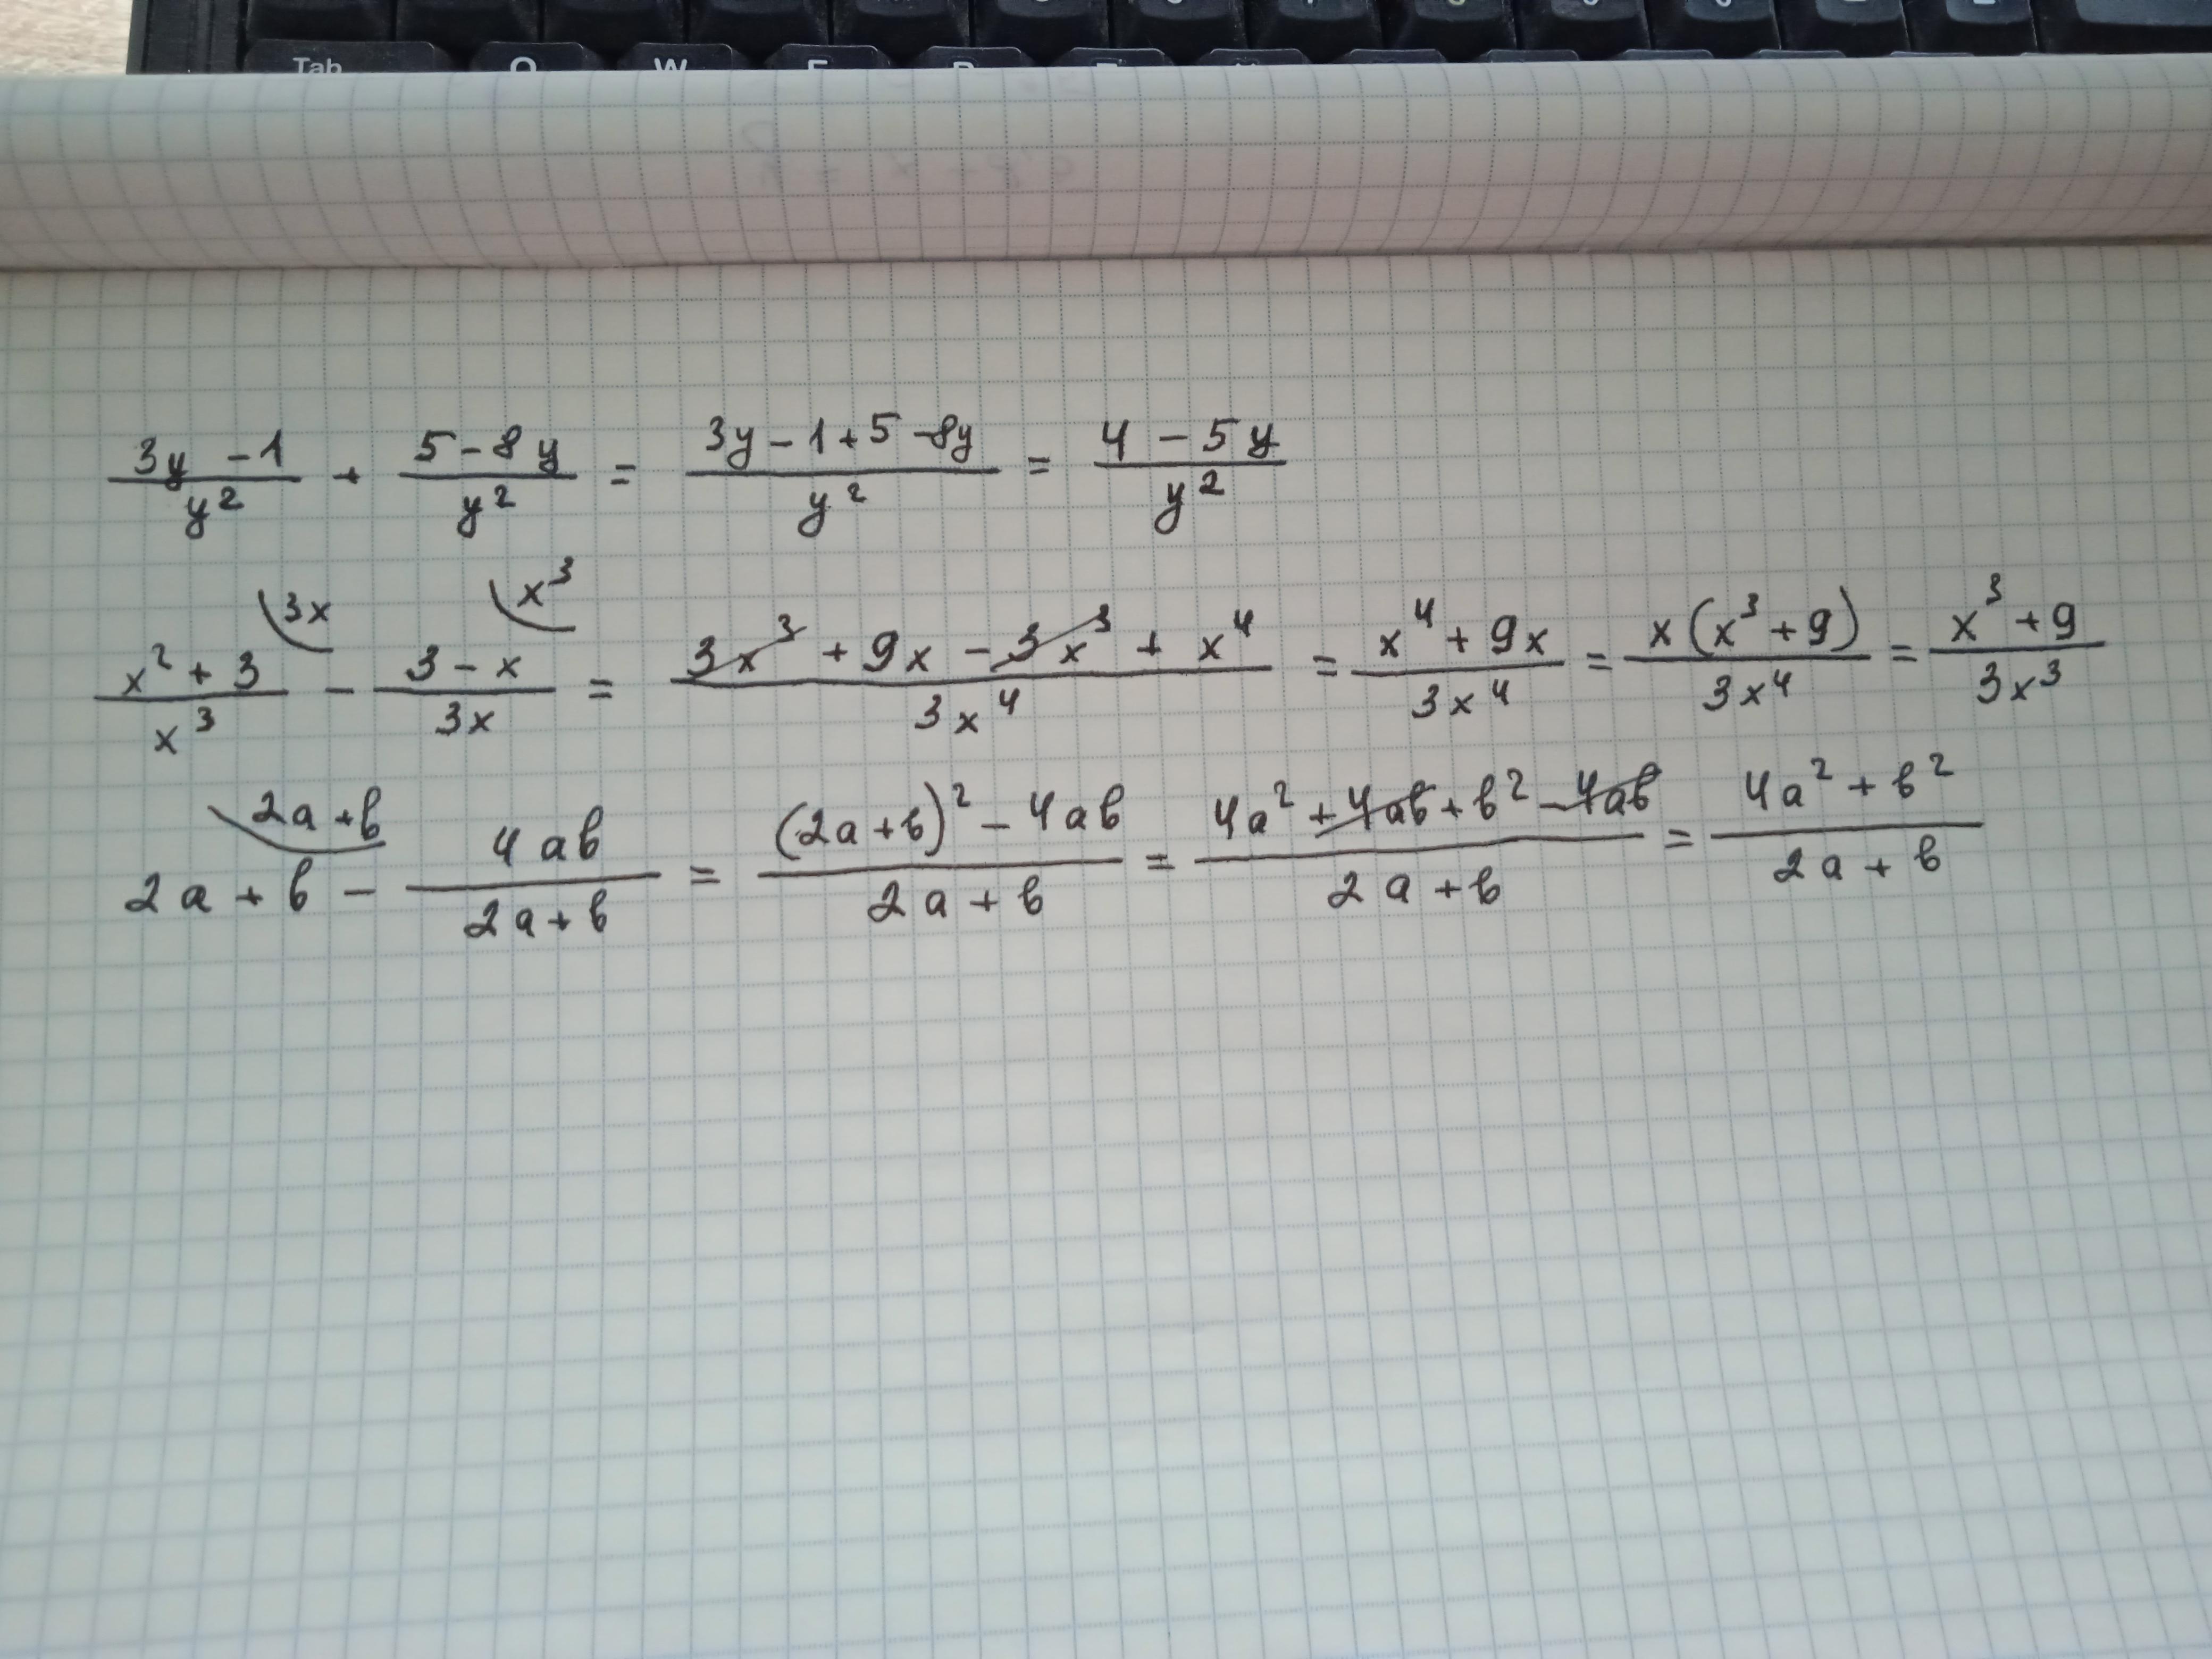 Tab Q W E R
(3y - 1)/y² + (5 - 8y)/y² = (3y - 1 + 5 - 8y)/y² = (4 - 5y)/y²
(x² + 3)/x³ \3x - (3 - x)/3x \x³ = (3x³ + 9x - 3x³ + x⁴)/3x⁴ = (x⁴ + 9x)/3x⁴ = x(x³ + 9)/3x⁴ = (x³ + 9)/3x³
2a + b \2a + b - 4ab/(2a + b) = ((2a + b)² - 4ab)/(2a + b) = (4a² + 4ab + b² - 4ab)/(2a + b) = (4a² + b²)/(2a + b)